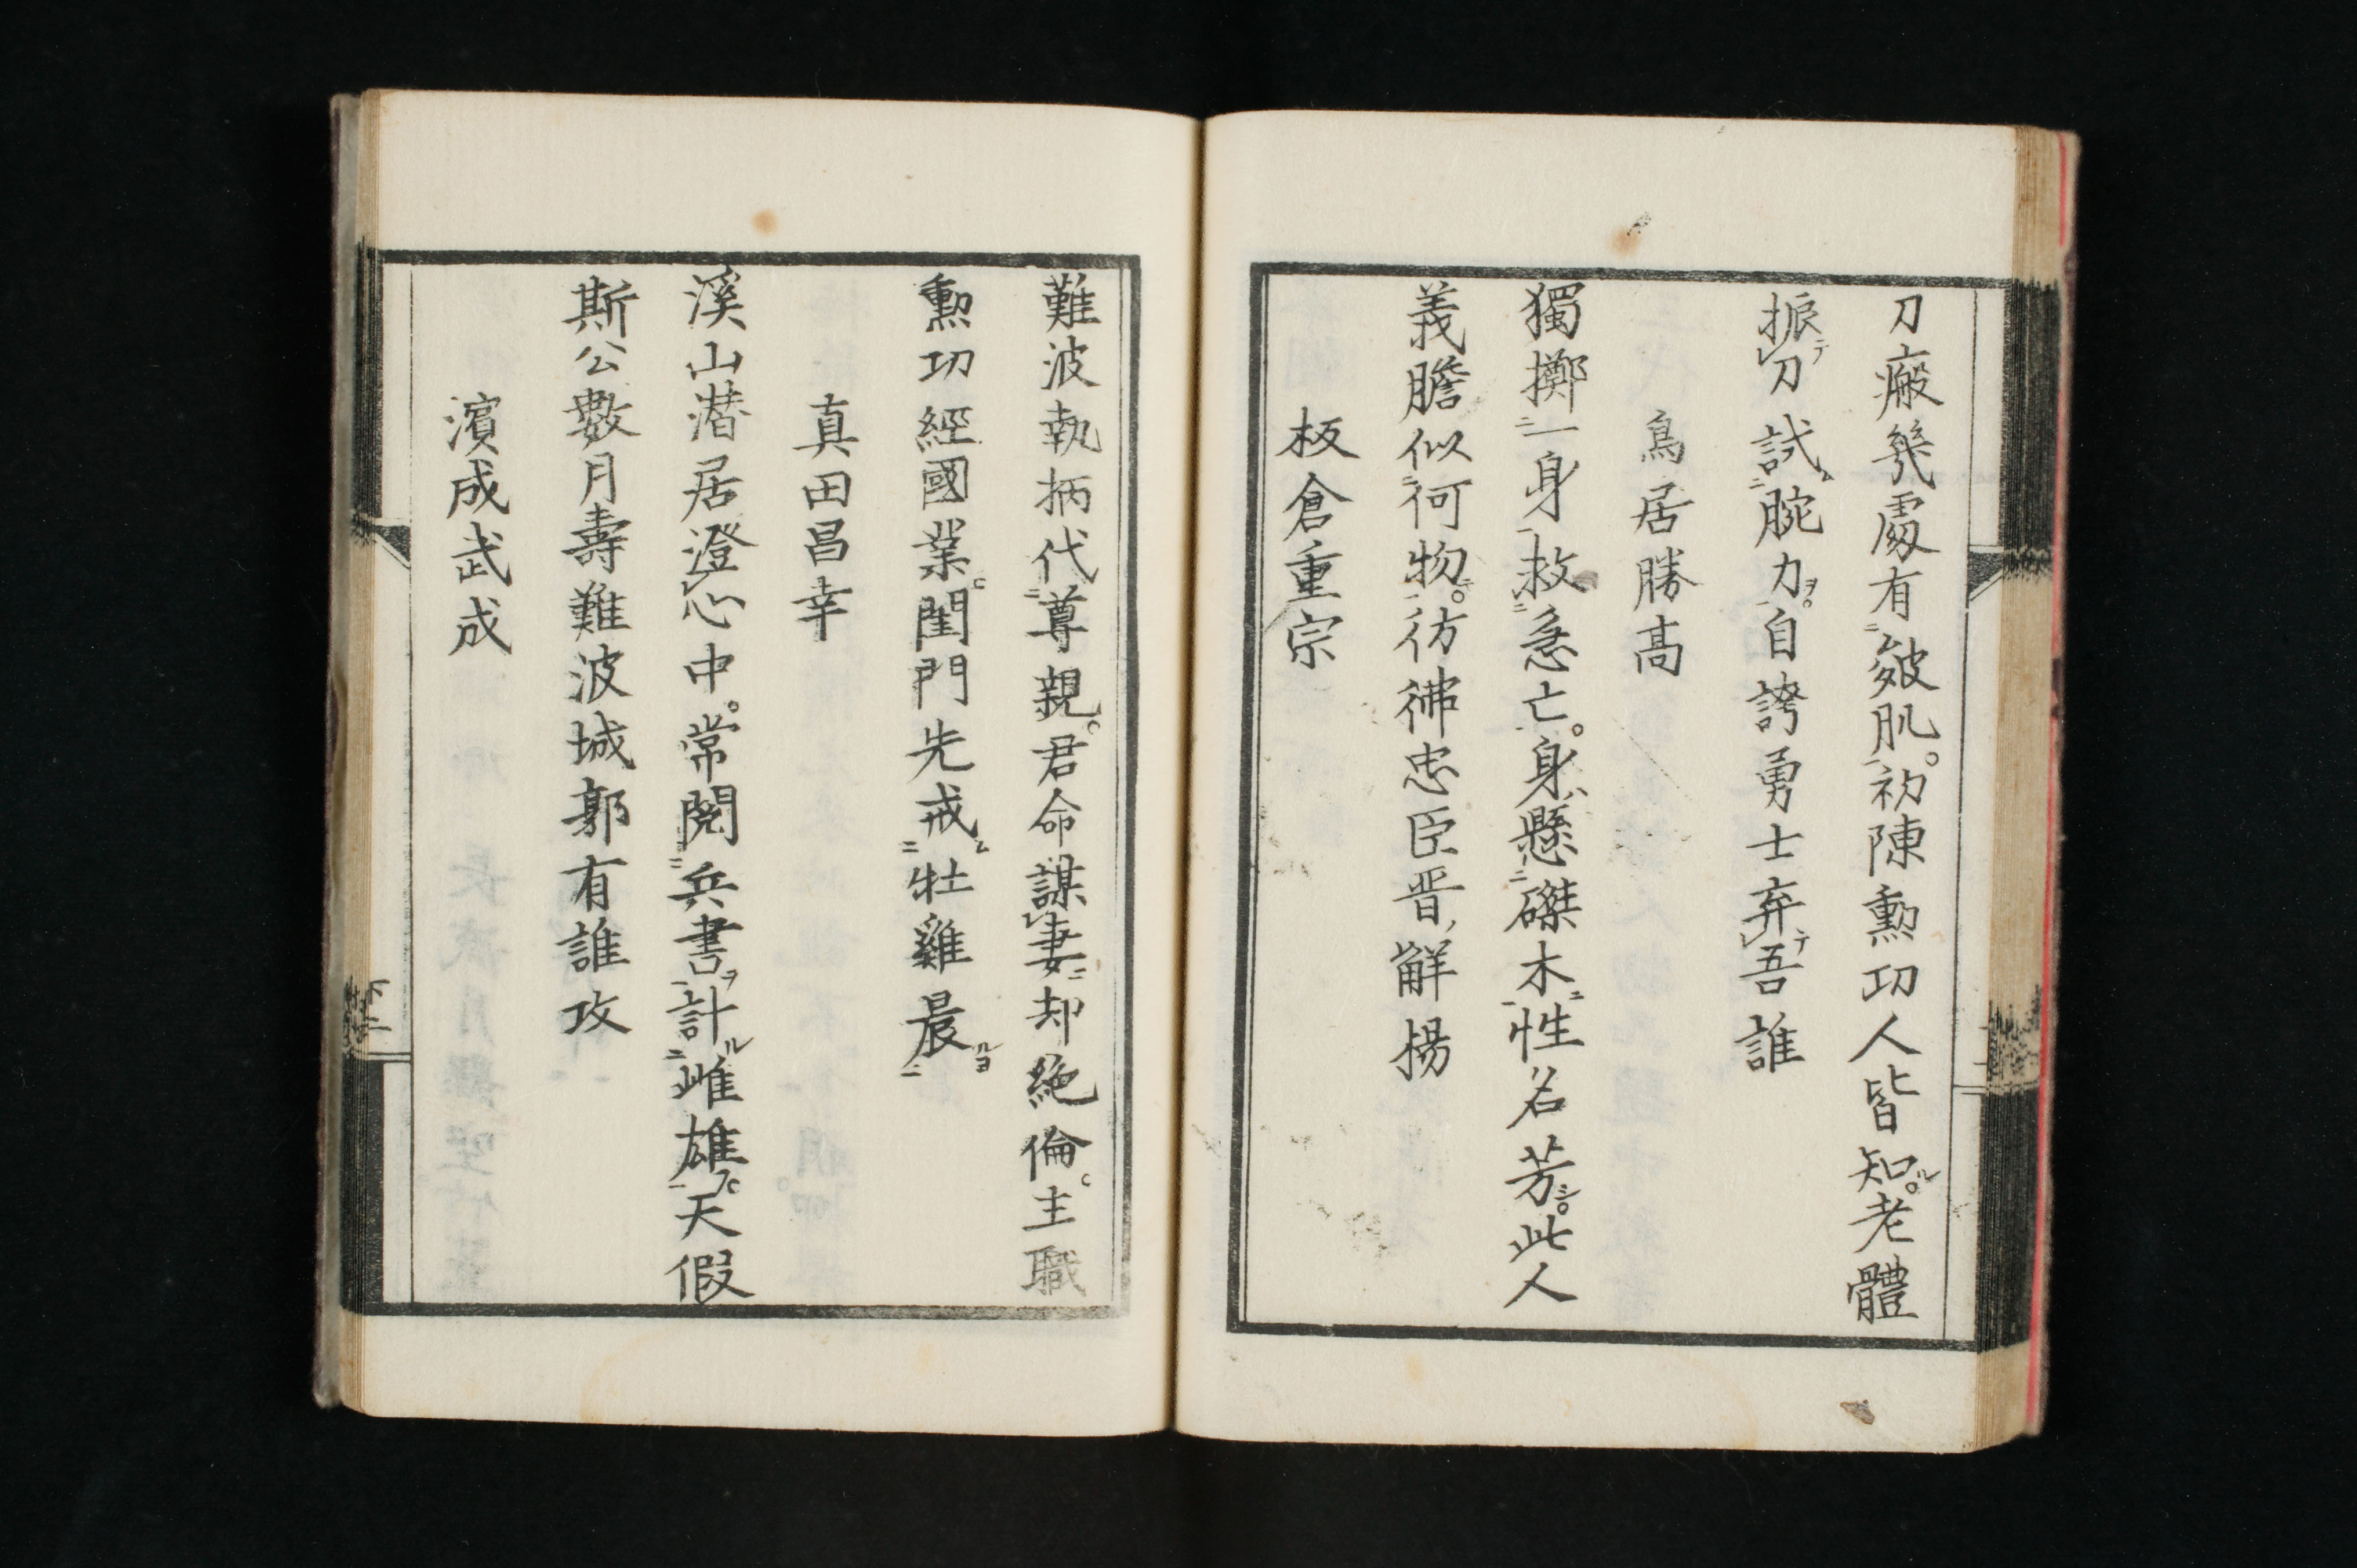 刀瘢幾處有皴肌。初陳勲功人皆知ル。老體
振テ刀試ム腕力ヲ。自誇勇士弃テ吾誰
鳥居勝高
獨擲一身救急亡。身ハ懸磔木ニ性名芳シ。此人
義膽似何物。彷彿忠臣晋ノ觧楊
板倉重宗
難波執柄代尊親。君命謀妻ニ却絶倫。主職
勲功經國業。閨門先戒ム牡雞晨ルヨ
真田昌幸
溪山潜居澄心中。常閲兵書ヲ計ル雌雄ヲ。天假
斯公數月壽難波城郭有誰攻
濱成武成
下二